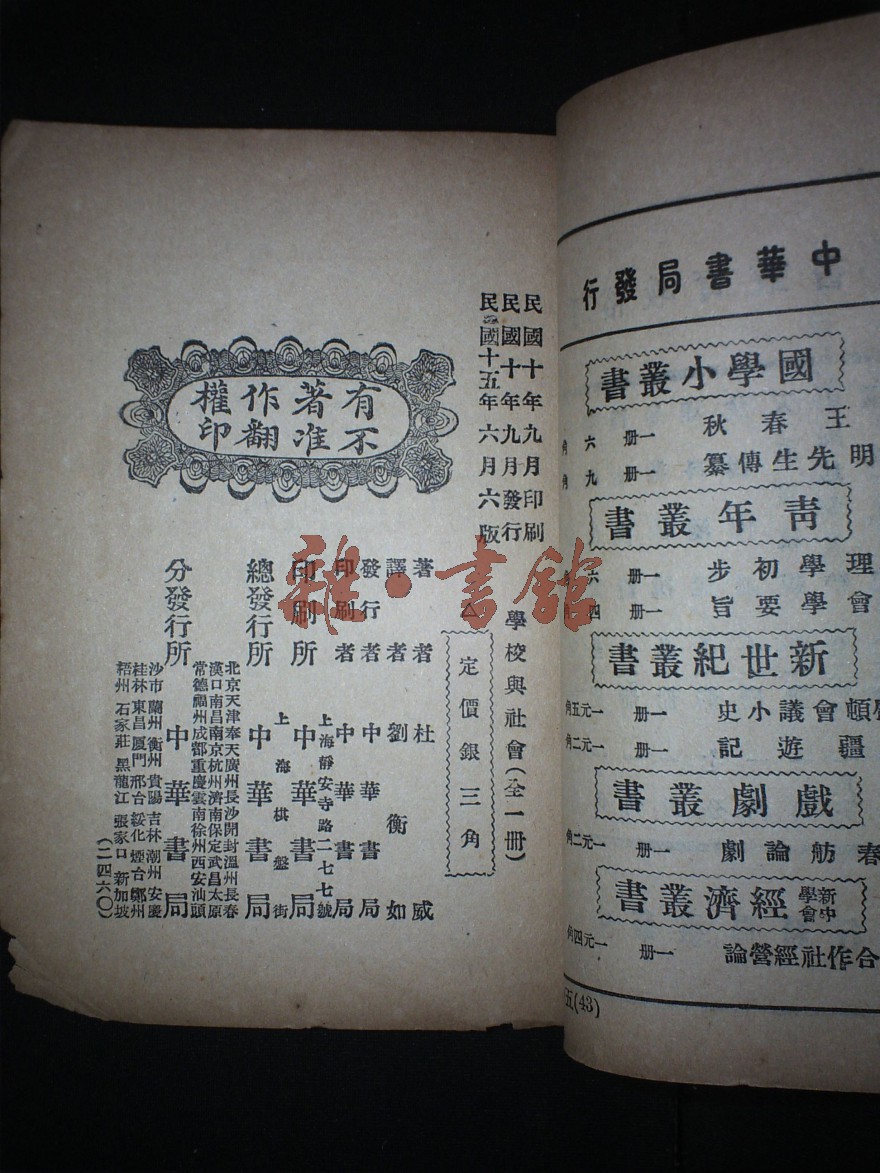 中華書局發行
國學小叢書
王春秋 一册 六角
明先生傳纂 一册 九角
青年叢書
理學初步 一册 六
會學要旨 一册 四
新世紀叢書
頓會議小史 一册 一元五角
疆遊記 一册 一元二角
戲劇叢書
春舫論劇 一册 一元二角
新中學會經濟叢書
合作社經營論 一册 一元四角
五(43)
民國十年九月印刷
民國十年九月發行
民國十五年六月六版
有著作權
不准翻印
學校與社會(全一册)
△定價銀三角
著者 杜威
譯者 劉衡如
發行者 中華書局
印刷者 中華書局
上海靜安寺路二七七號
印刷所 中華書局
上海棋盤街
總發行所 中華書局
北京天津奉天廣州長沙開封溫州長春
漢口南昌南京杭州濟南保定武昌太原
常德福州成都重慶雲南徐州西安汕頭
分發行所 中華書局
沙市蘭州衡州貴陽吉林潮州安慶
桂林東昌厦門邢台綏化煙台鄭州
梧州石家莊黑龍江張家口新加坡
(二四六〇)
雜·書館